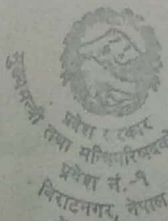 प्रदेश सरकार
मुख्यमन्त्री तथा मन्त्रिपरिषद्को
प्रदेश नं.-१
विराटनगर, नेपाल